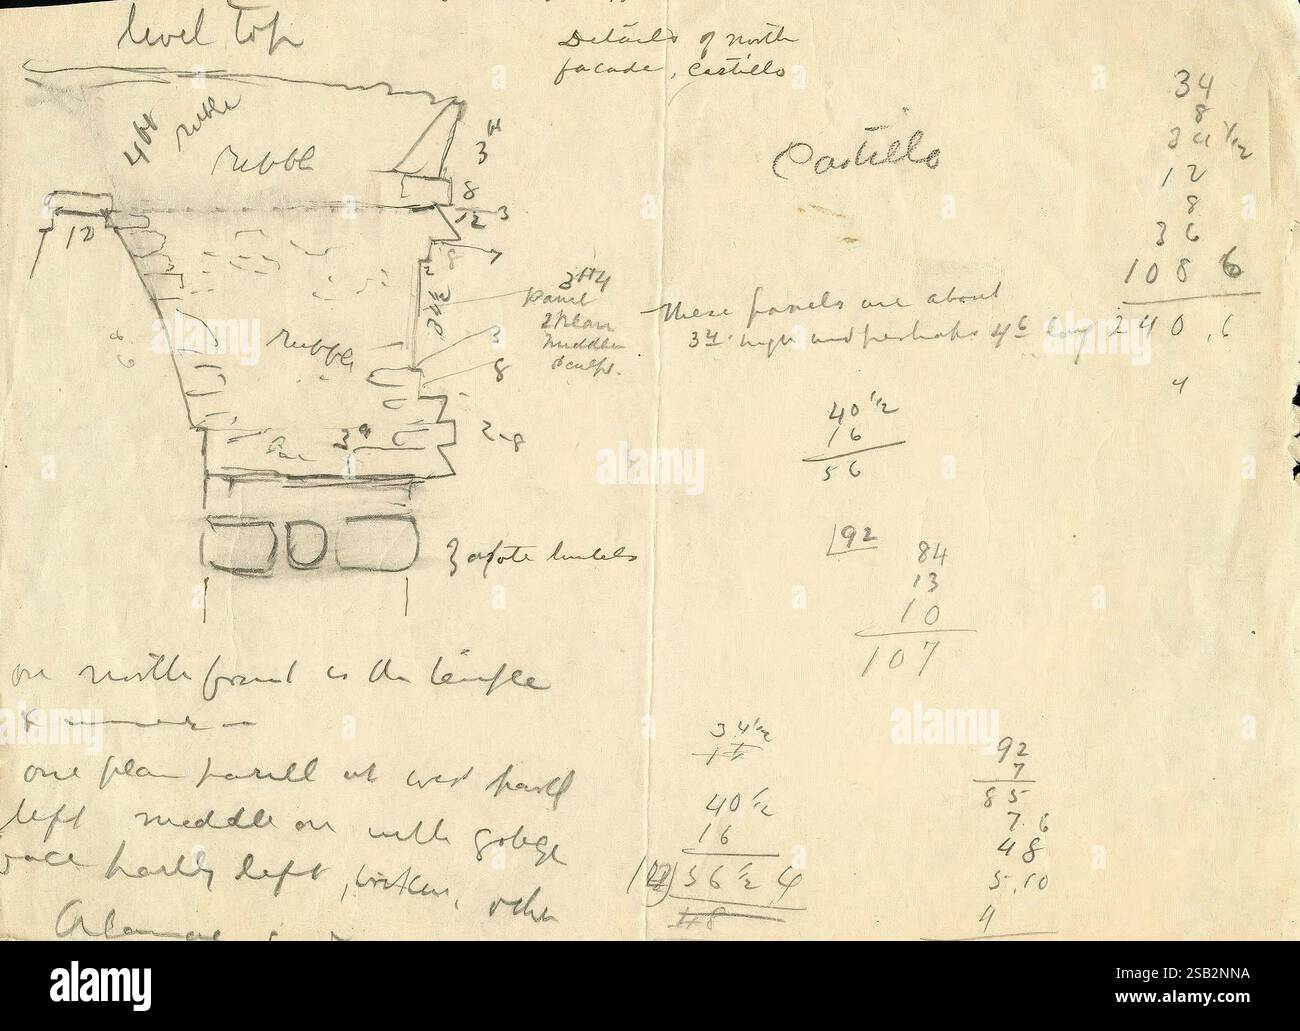 level top
Details of north
facade, Castillo
Castillo
4 ft rubble
rubble
3 ft
8
12 3
12
7
8
34½
3 ft 4
panel
2 plain
middle
sculpt.
3
8
rubble
3 9
2-8
Zapote lintels
These panels are about
3 4 high and perhaps 4 6 long
34
8
34 1/2
12
8
36
108 6
240.6
4
40 1/2
16
56
92
84
13
10
107
34 1/2
40 1/2
16
56 1/2 4
48
92
7
85
7.6
48
5.10
9
on north front is the temple
one plain panel at west
left middle one with
left, broken, other
alamy
a
alamy
Image ID: 2SB2NNA
www.alamy.com